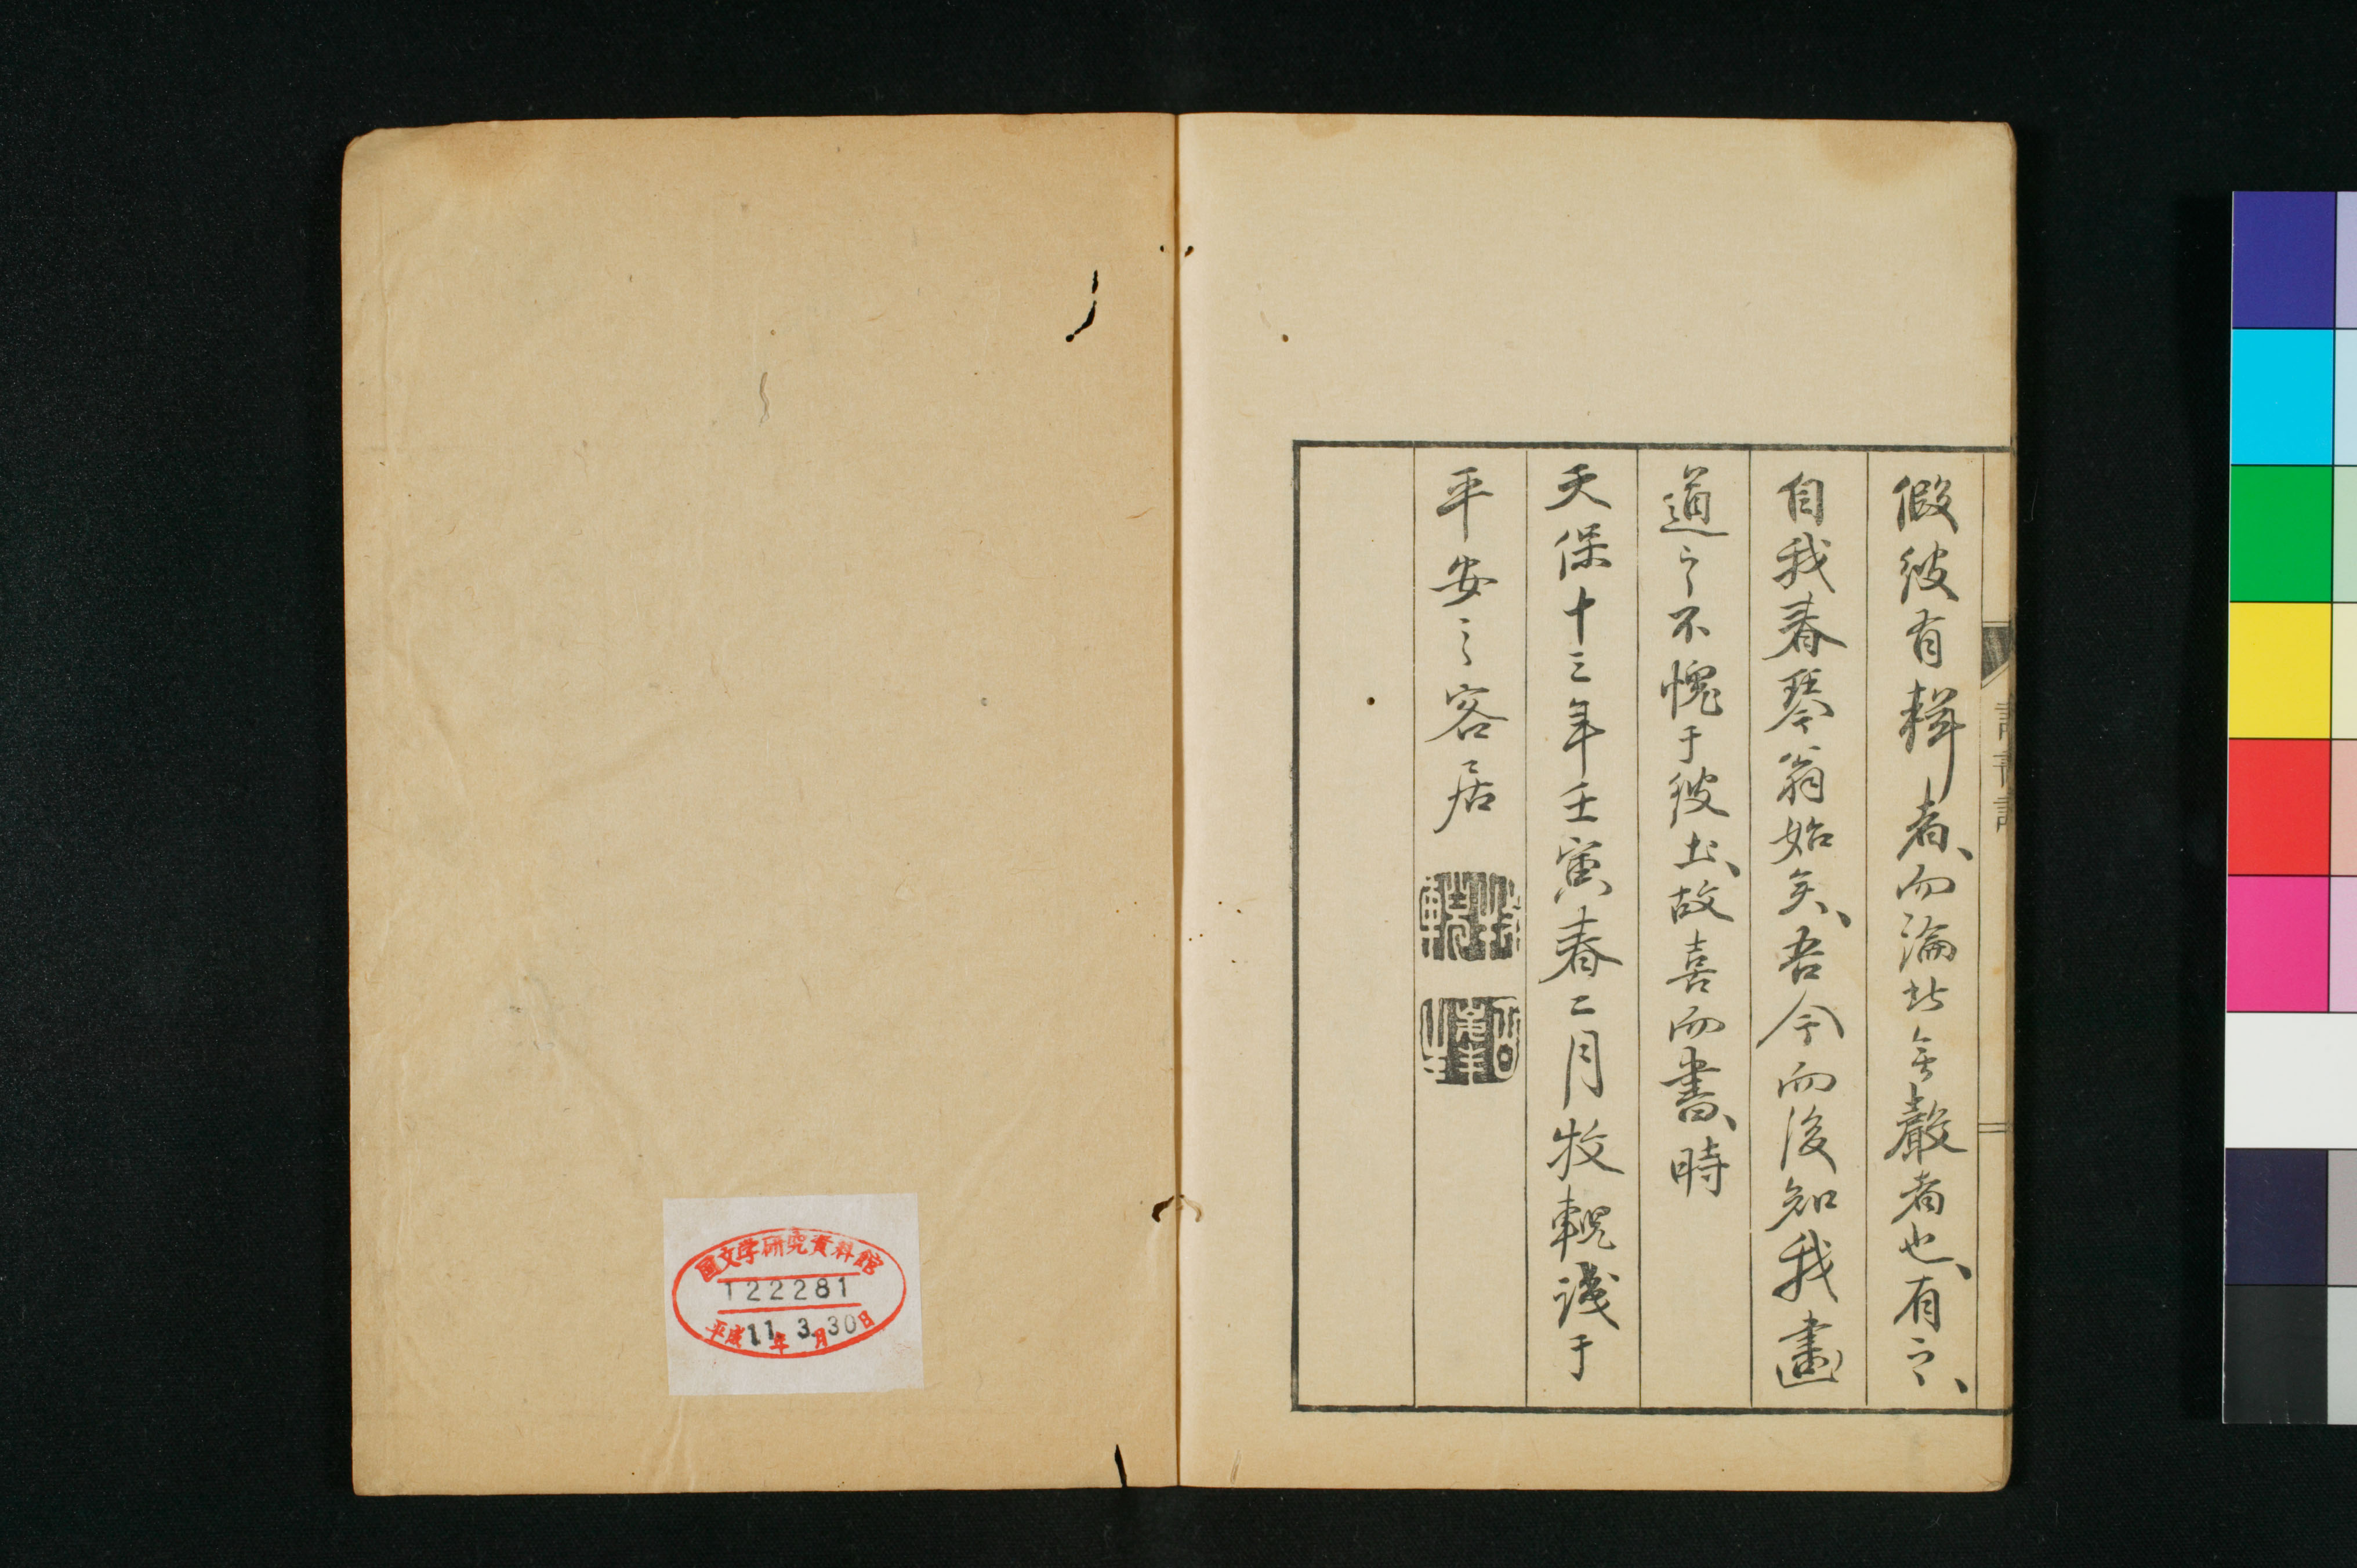 假彼有輯者、而論此無嚴者也、有之、
自我春琴翁始矣、吾今而後知我畫
道之不愧于彼土、故喜而書、時
天保十三年壬寅春二月牧輗識于
平安之客居
國文学研究資料館
122281
平成11年3月30日